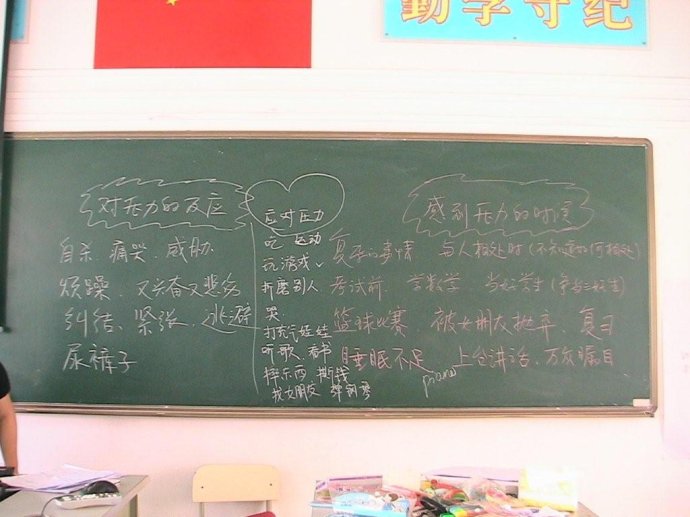 勤学守纪
对压力的反应
自杀 痛哭、威胁
烦躁、又兴奋又悲伤
纠结、紧张、逃避
尿裤子
应对压力
吃 运动
玩游戏、
折磨别人
哭、
打充气娃娃
听歌、看书
摔东西 撕钱
找女朋友 弹钢琴
感到压力的时候
复杂的事情 与人相处时(不知道如何相处)
考试前 学数学 当好学生(争当三好生)
篮球比赛 被女朋友抛弃、复习
睡眠不足 上台讲话、万众瞩目